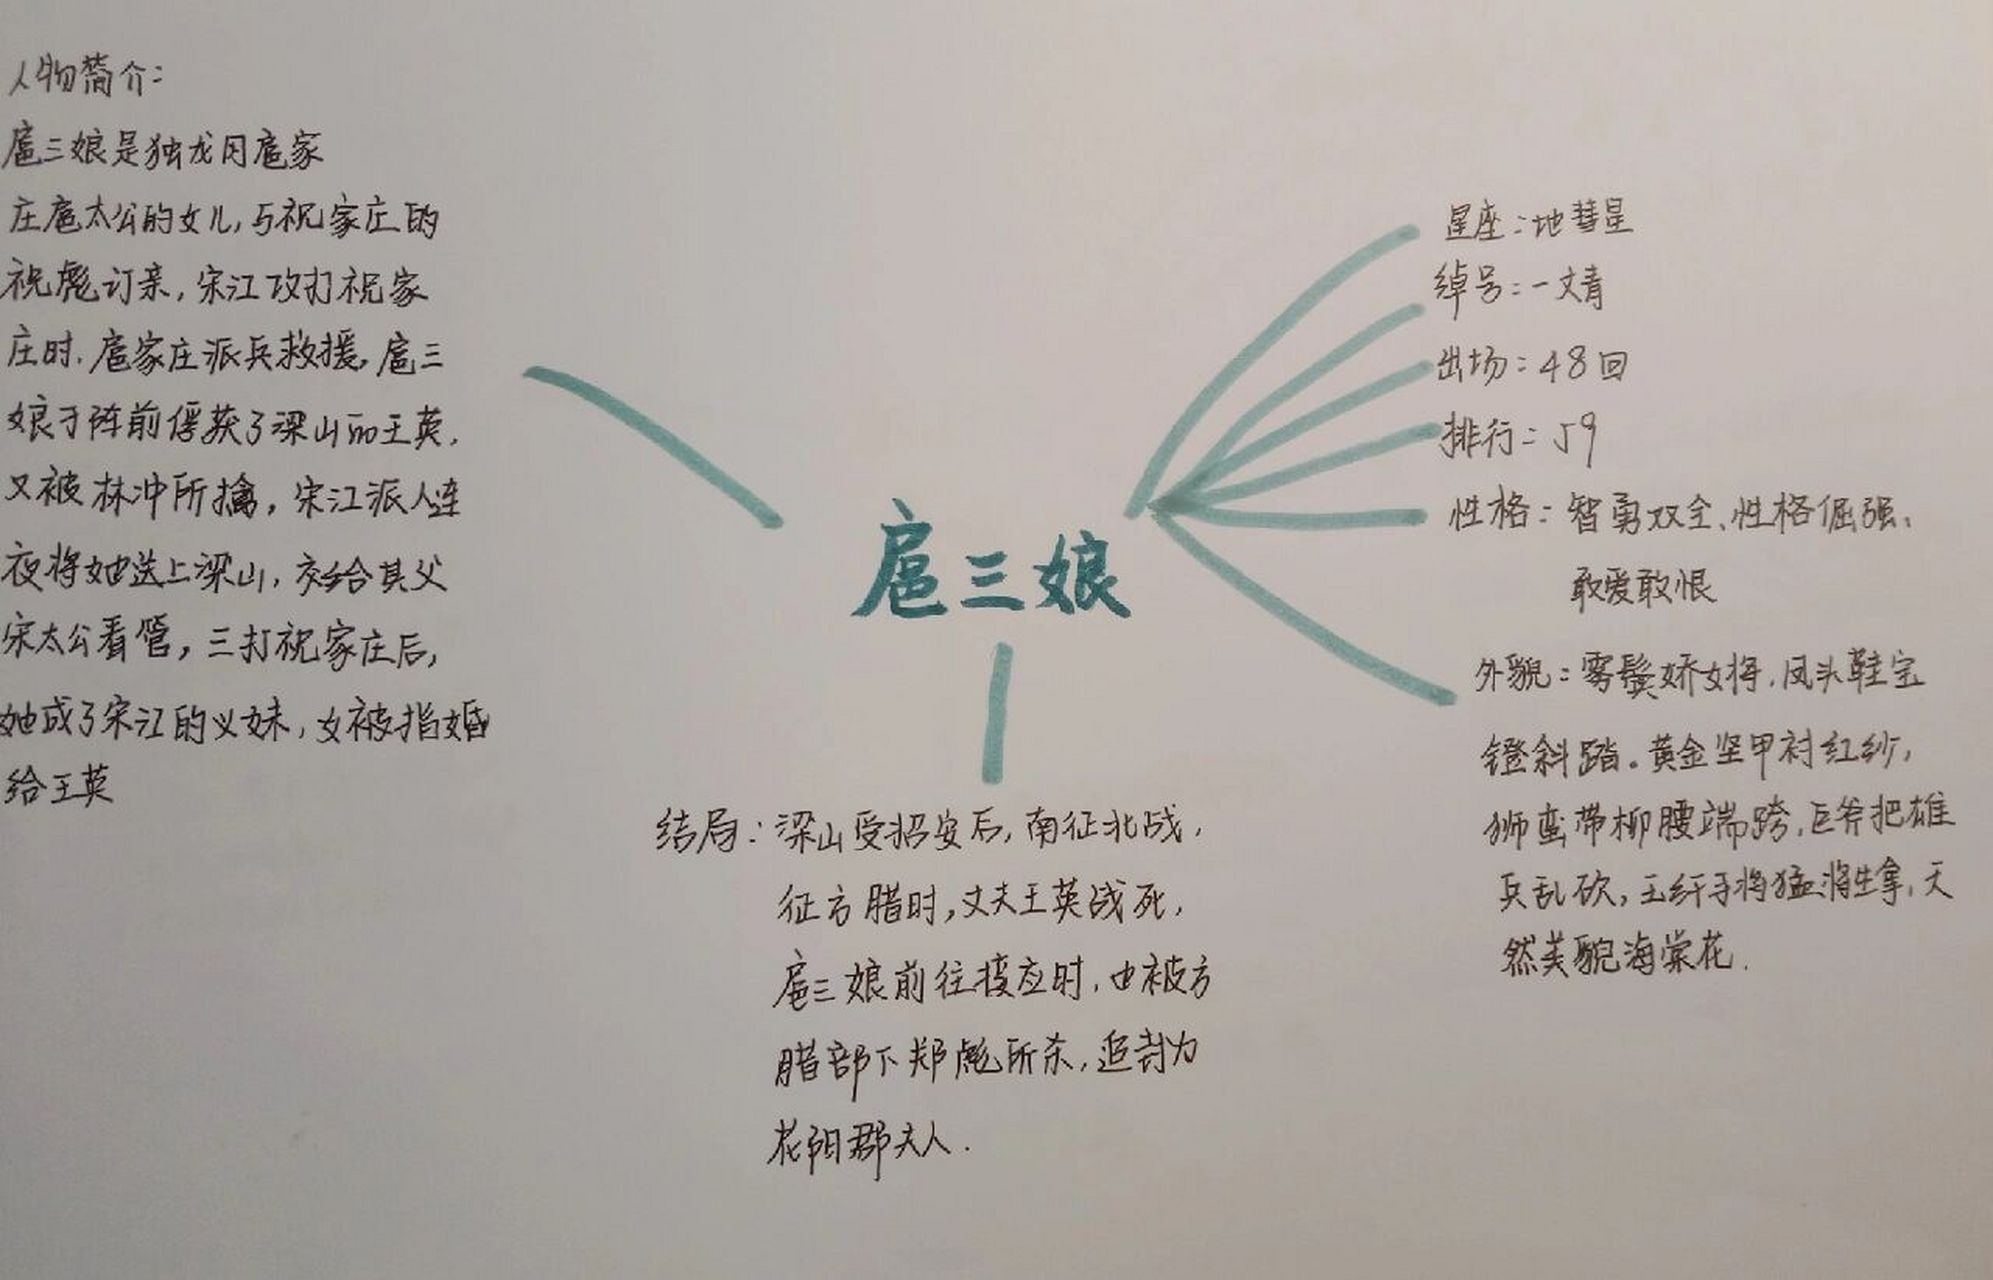 人物简介：
扈三娘是独龙冈扈家
庄扈太公的女儿，与祝家庄的
祝彪订亲，宋江攻打祝家
庄时，扈家庄派兵救援，扈三
娘于阵前俘获了梁山的王英，
又被林冲所擒，宋江派人连
夜将她送上梁山，交给其父
宋太公看管，三打祝家庄后，
她成了宋江的义妹，女被指婚
给王英
扈三娘
星座：地彗星
绰号：一丈青
出场：48回
排行：59
性格：智勇双全、性格倔强、
敢爱敢恨
外貌：雾鬓娇女将，凤头鞋宝
镫斜踏。黄金坚甲衬红纱，
狮蛮带柳腰端跨，巨斧把雄
兵乱砍，玉纤手将猛将生拿，天
然美貌海棠花.
结局：梁山受招安后，南征北战，
征方腊时，丈夫王英战死，
扈三娘前往接应时，也被方
腊部下郑彪所杀，追封为
花阳郡夫人.